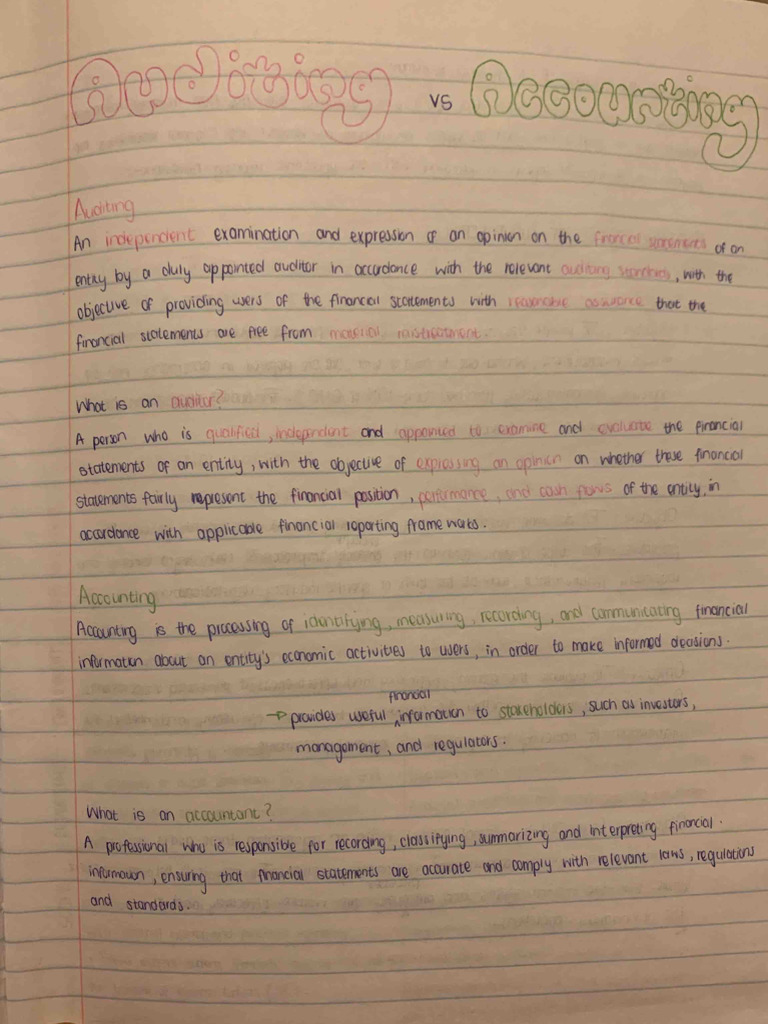 Auditing vs Accounting
Auditing
An independent examination and expression of an opinion on the financial statements of an
entity by a duly appointed auditor in accordance with the relevant auditing standards, with the
objective of providing users of the financial statements with reasonable assurance that the
financial statements are free from material misstatement.
What is an auditor?
A person who is qualified, independent and appointed to examine and evaluate the financial
statements of an entity, with the objective of expressing an opinion on whether these financial
statements fairly represent the financial position, performance, and cash flows of the entity, in
accordance with applicable financial reporting frameworks.
Accounting
Accounting is the processing of identifying, measuring, recording, and communicating financial
information about an entity's economic activities to users, in order to make informed decisions.
financial
→ provides useful ^ information to stakeholders, such as investors,
management, and regulators.
What is an accountant?
A professional who is responsible for recording, classifying, summarizing and interpreting financial.
informaion, ensuring that financial statements are accurate and comply with relevant laws, regulations
and standards.